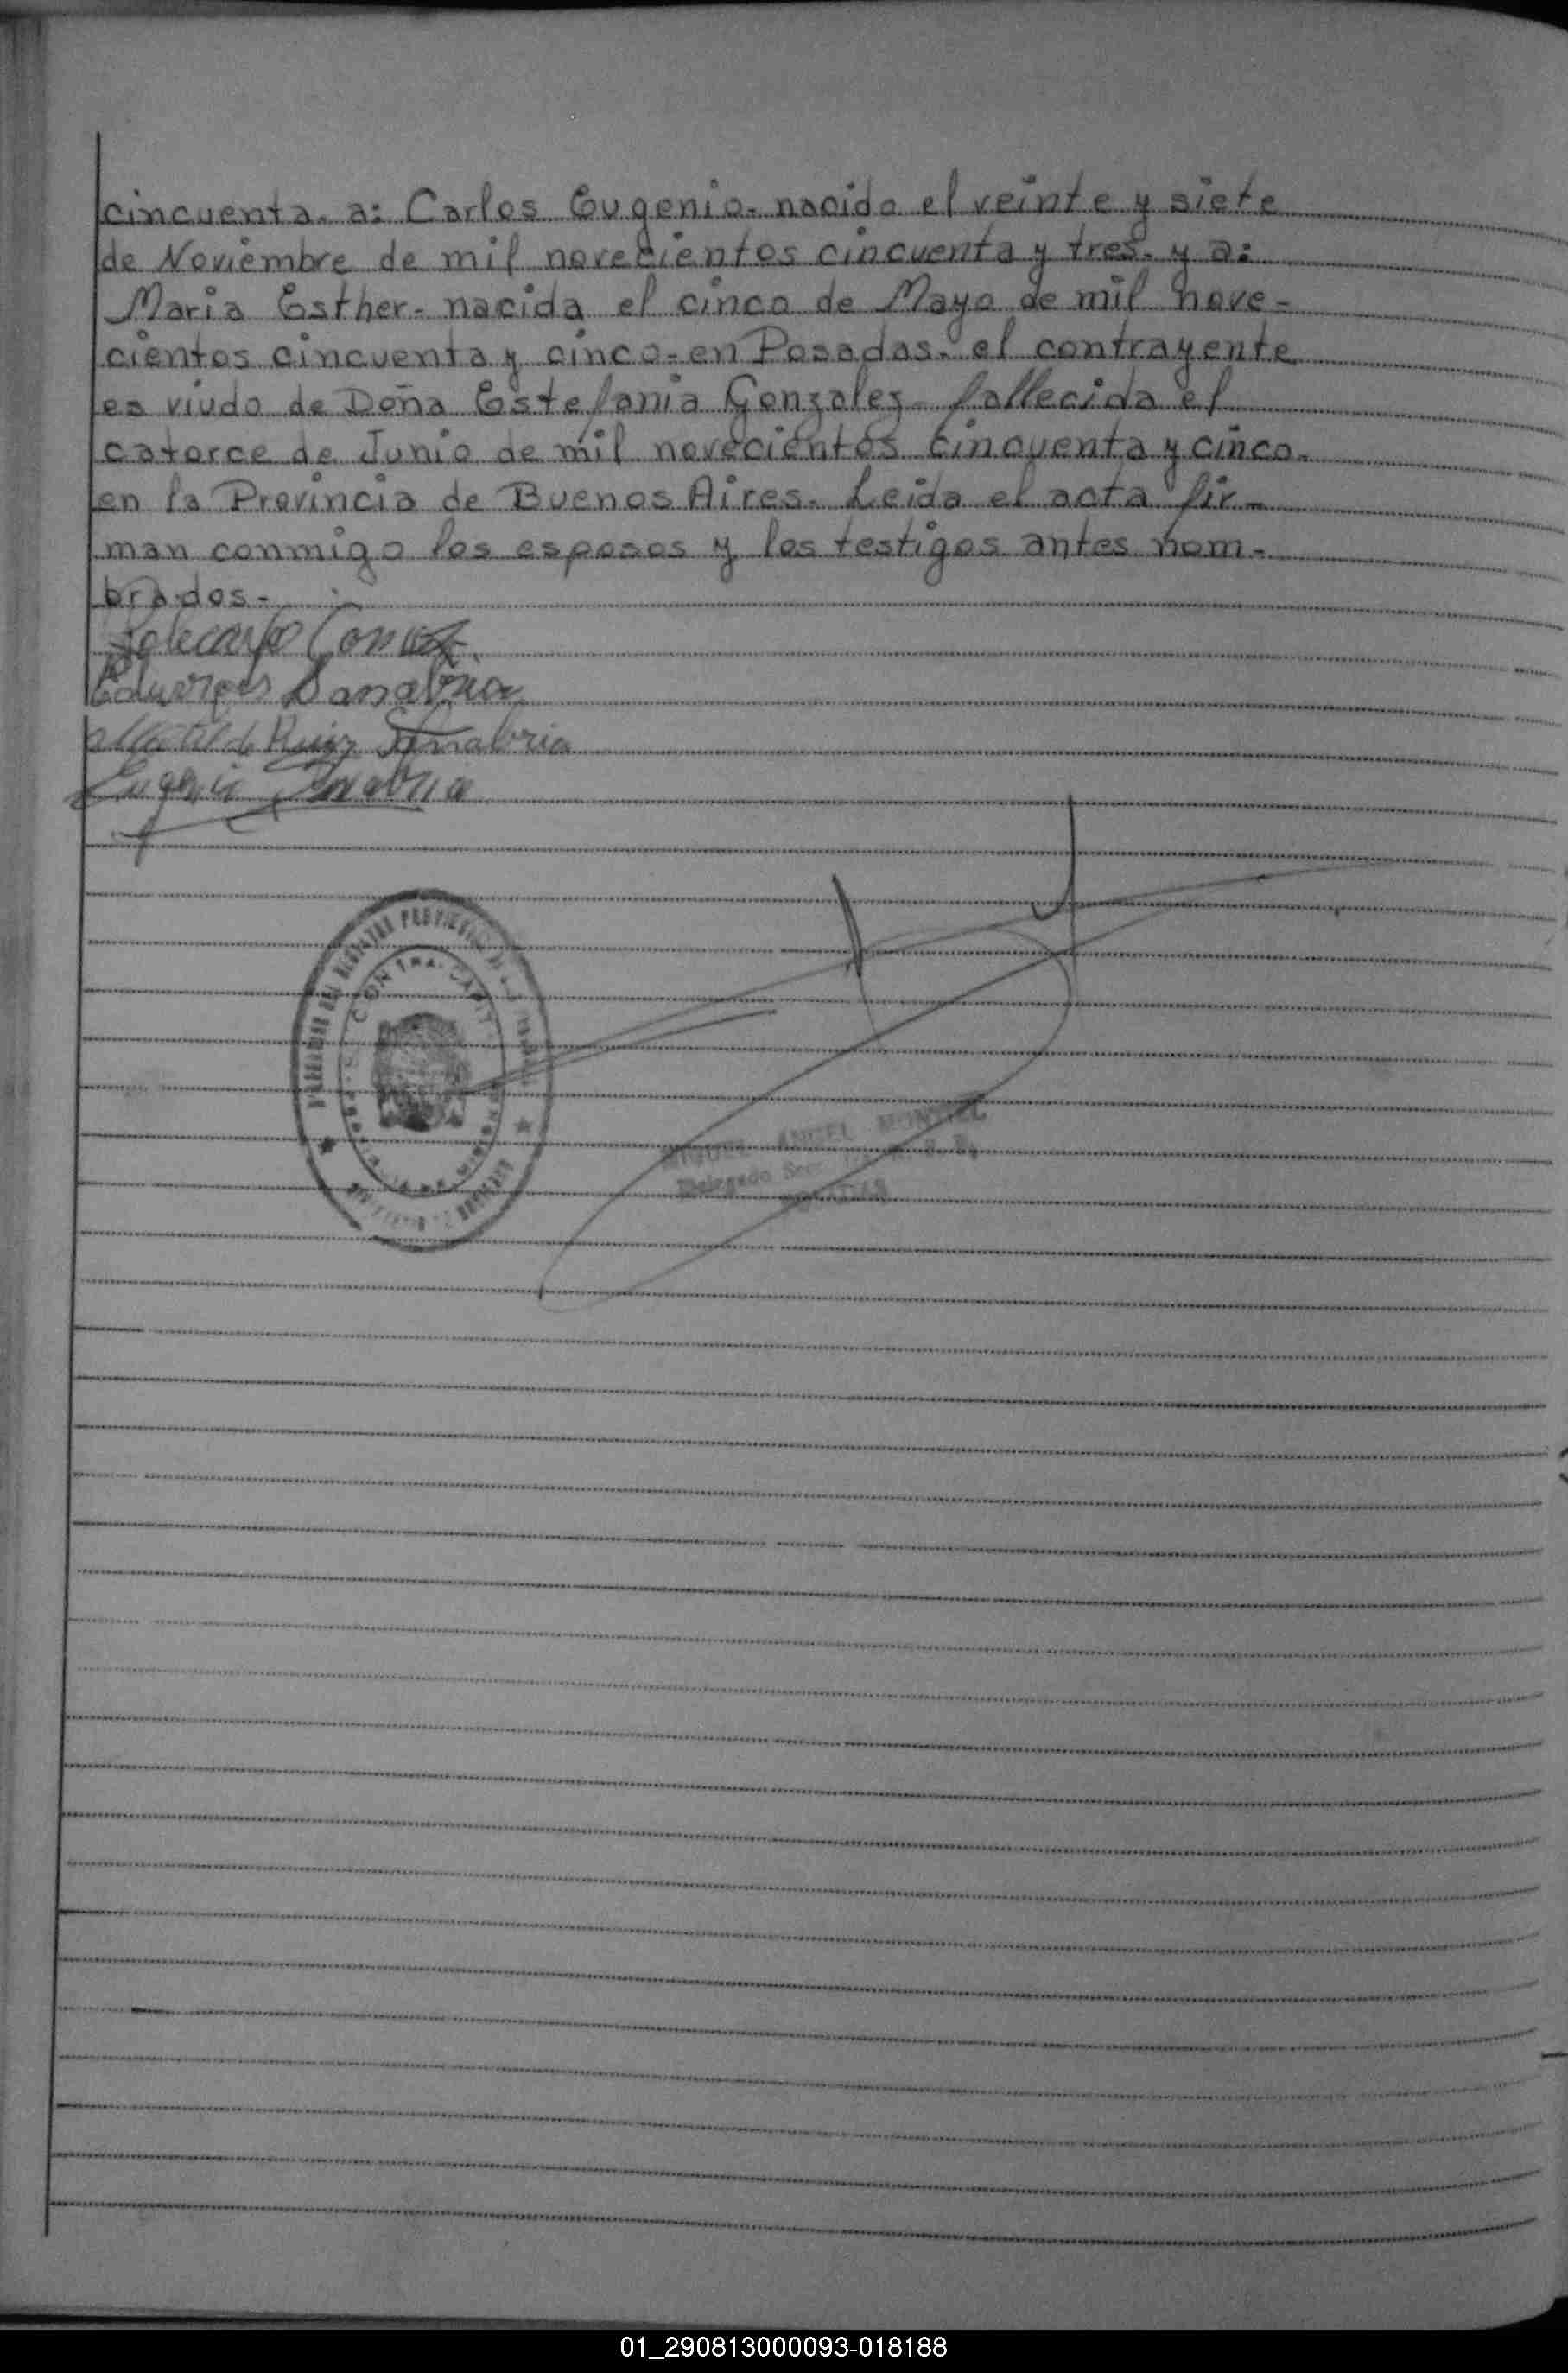 cincuenta. a: Carlos Eugenio. nacido el veinte y siete
de Noviembre de mil novecientos cincuenta y tres. y a:
Maria Esther. nacida el cinco de Mayo de mil nove-
cientos cincuenta y cinco. en Posadas. el contrayente
es viudo de Doña Estefania Gonzalez. fallecida el
catorce de Junio de mil novecientos cincuenta y cinco.
en la Provincia de Buenos Aires. Leida el acta fir-
man conmigo los esposos y los testigos antes nom-
brados.
Policarpo Gomez
Sanabria
de Ruiz Sanabria
Eugenio Sanabria
MIGUEL ANGEL MONTIEL
Delegado
POSADAS
01_290813000093-018188